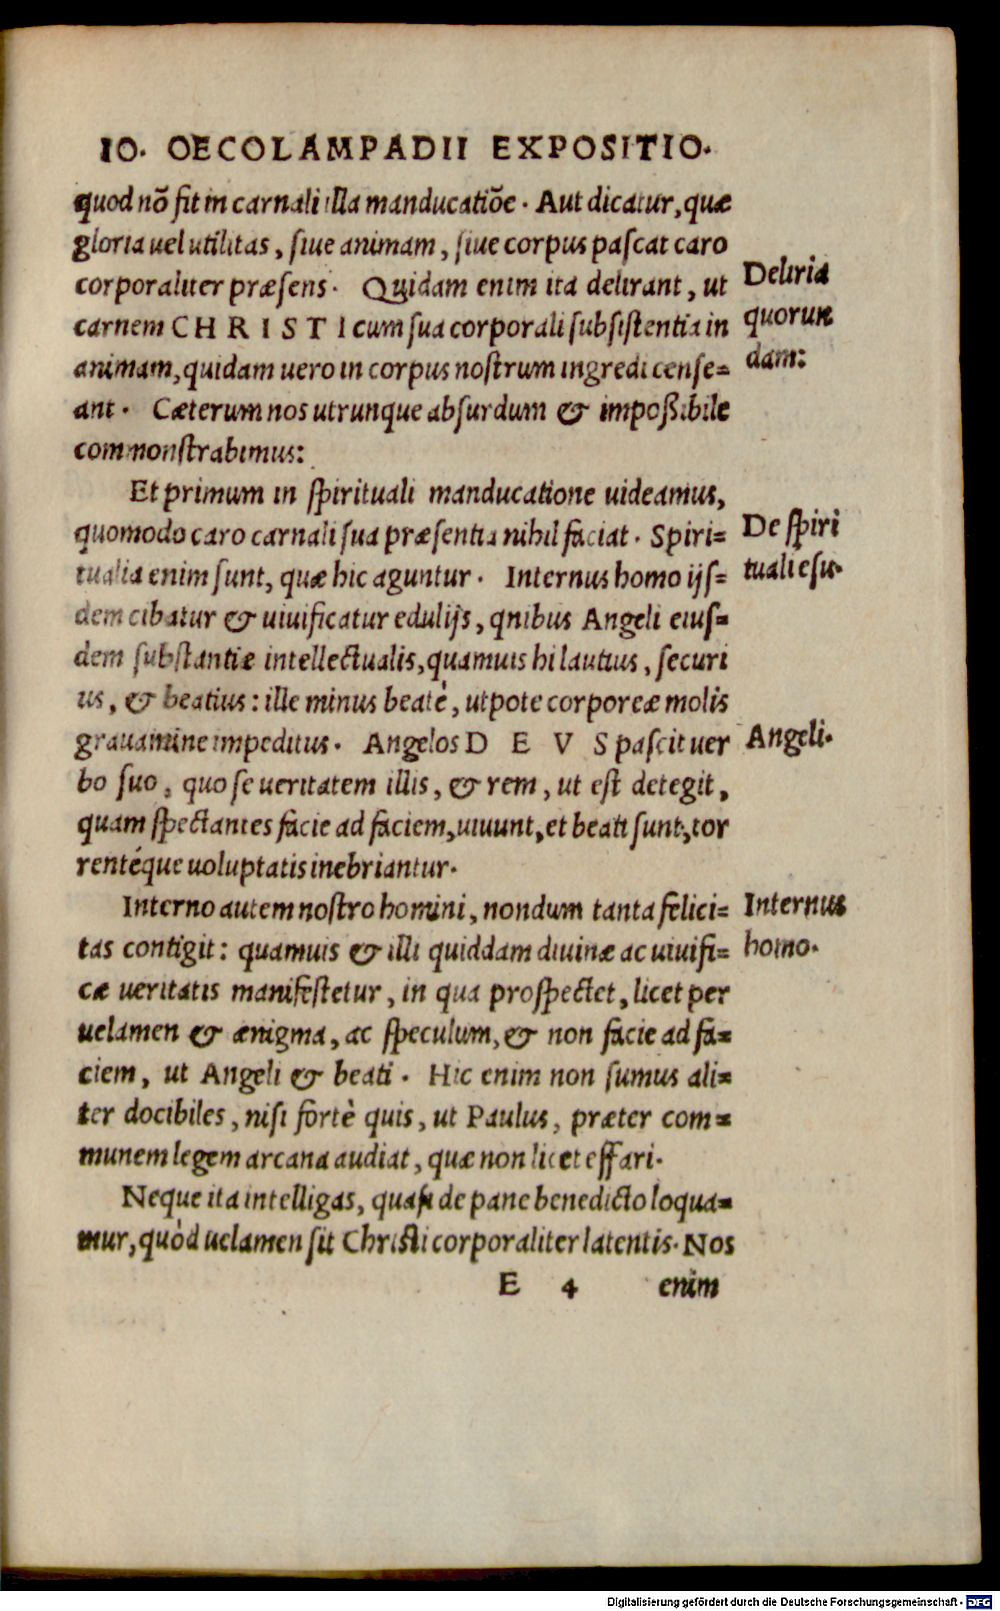 IO. OECOLAMPADII EXPOSITIO.
quod nõ fit in carnali illa manducatiõe. Aut dicatur, quæ
gloria uel utilitas, siue animam, siue corpus pascat caro
corporaliter præsens. Quidam enim ita delirant, ut
carnem CHRISTI cum sua corporali subsistentia in
animam, quidam uero in corpus nostrum ingredi cense=
ant. Cæterum nos utrunque absurdum & impoßibile
commonstrabimus:
Deliria
quorun
dam:
Et primum in spirituali manducatione uideamus,
quomodo caro carnali sua præsentia nihil faciat. Spiri=
tualia enim sunt, quæ hic aguntur. Internus homo ijs=
dem cibatur & uiuificatur edulijs, qnibus Angeli eius=
dem substantiæ intellectualis, quamuis hi lautius, securi
us, & beatius: ille minus beatè, utpote corporeæ molis
grauamine impeditus. Angelos DEVS pascit uer
bo suo, quo se ueritatem illis, & rem, ut est detegit,
quam spectantes facie ad faciem, uiuunt, et beati sunt, tor
rentéque uoluptatis inebriantur.
De spiri
tuali esu.
Angeli.
Interno autem nostro homini, nondum tanta felici=
tas contigit: quamuis & illi quiddam diuinæ ac uiuifi=
cæ ueritatis manifestetur, in qua prospectet, licet per
uelamen & ænigma, ac speculum, & non facie ad fa=
ciem, ut Angeli & beati. Hic enim non sumus ali=
ter docibiles, nisi fortè quis, ut Paulus, præter com=
munem legem arcana audiat, quæ non licet effari.
Internus
homo.
Neque ita intelligas, quasi de pane benedicto loqua=
mur, quòd uelamen sit Christi corporaliter latentis. Nos
E 4 enim
Digitalisierung gefördert durch die Deutsche Forschungsgemeinschaft - DFG